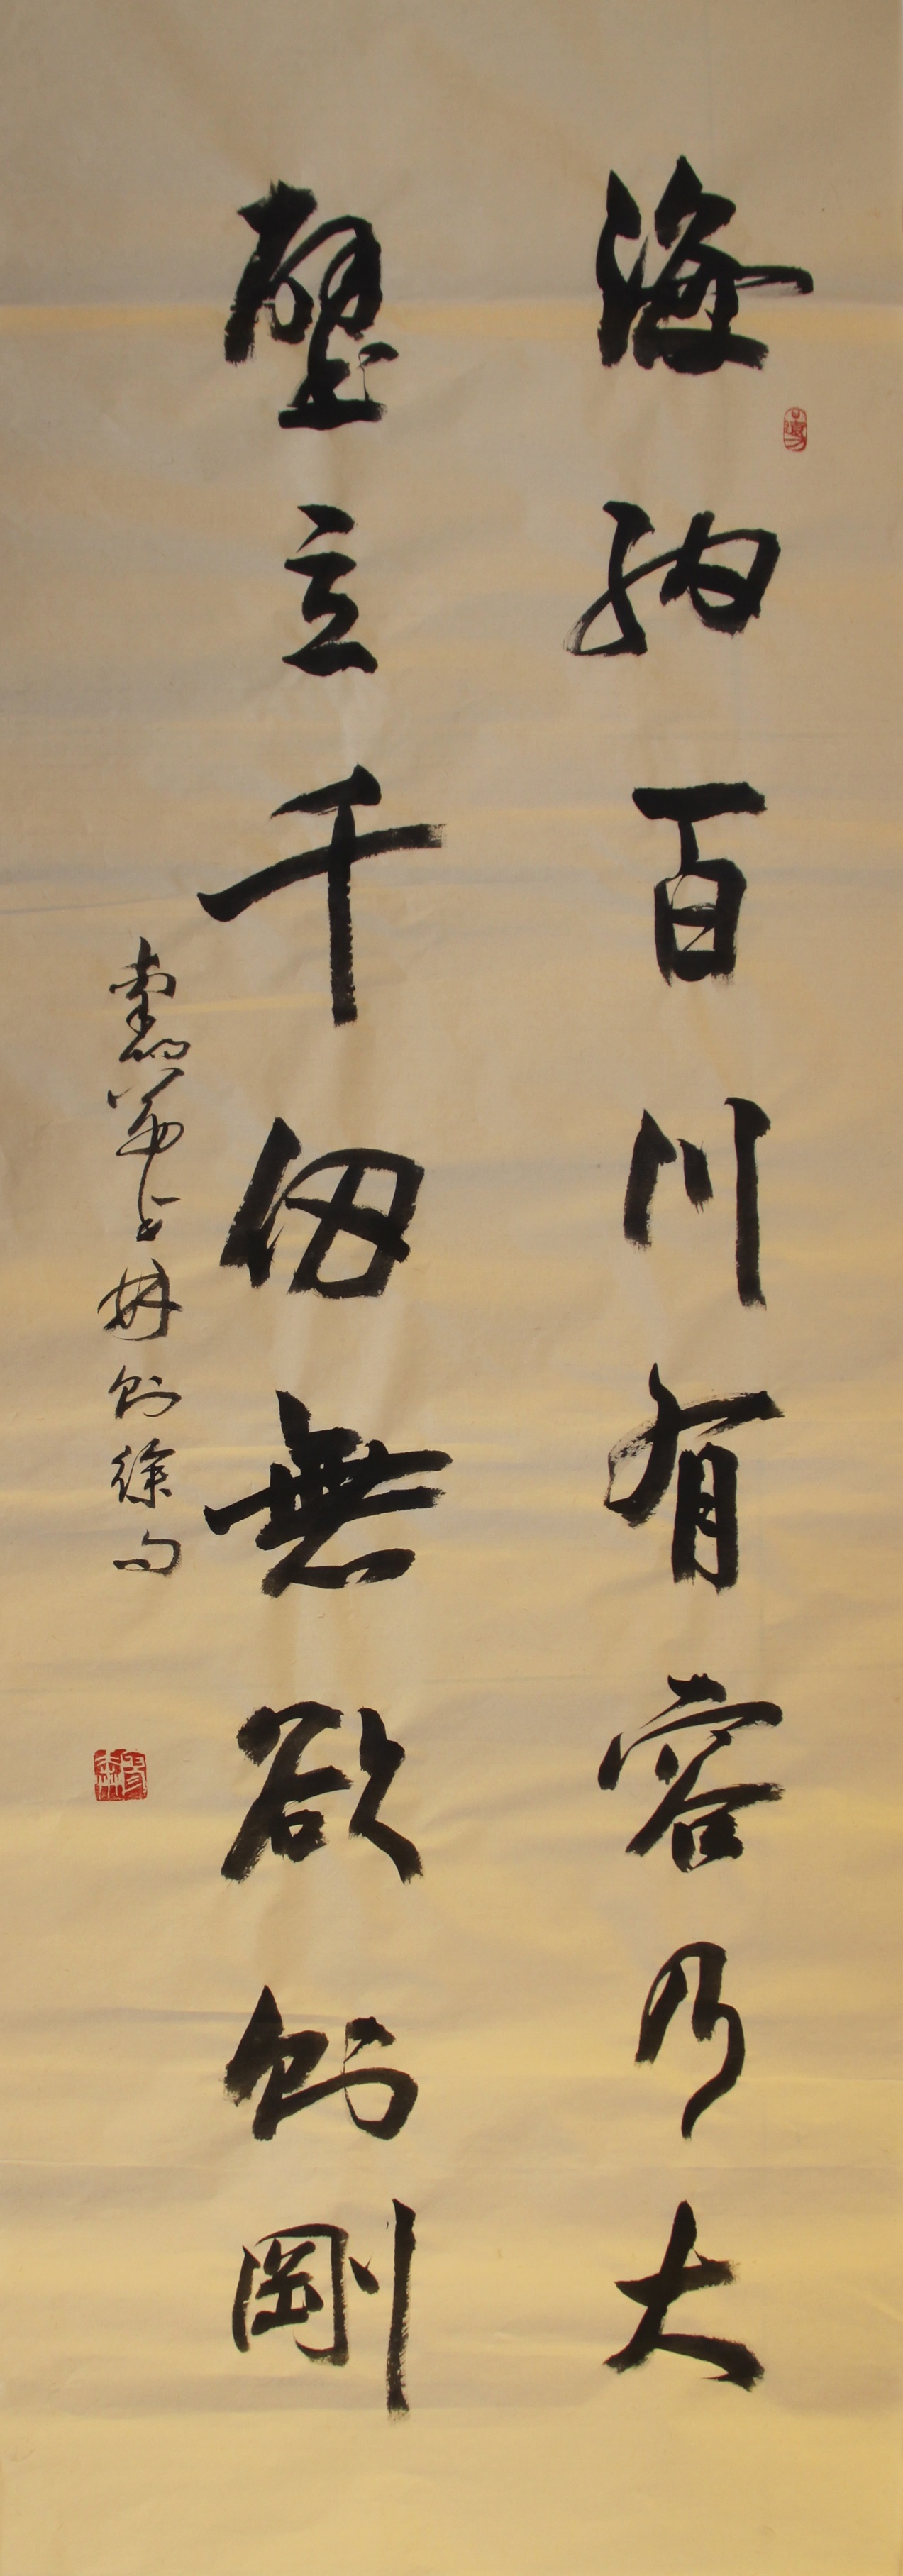 海納百川有容乃大
壁立千仞無欲則剛
林則徐句